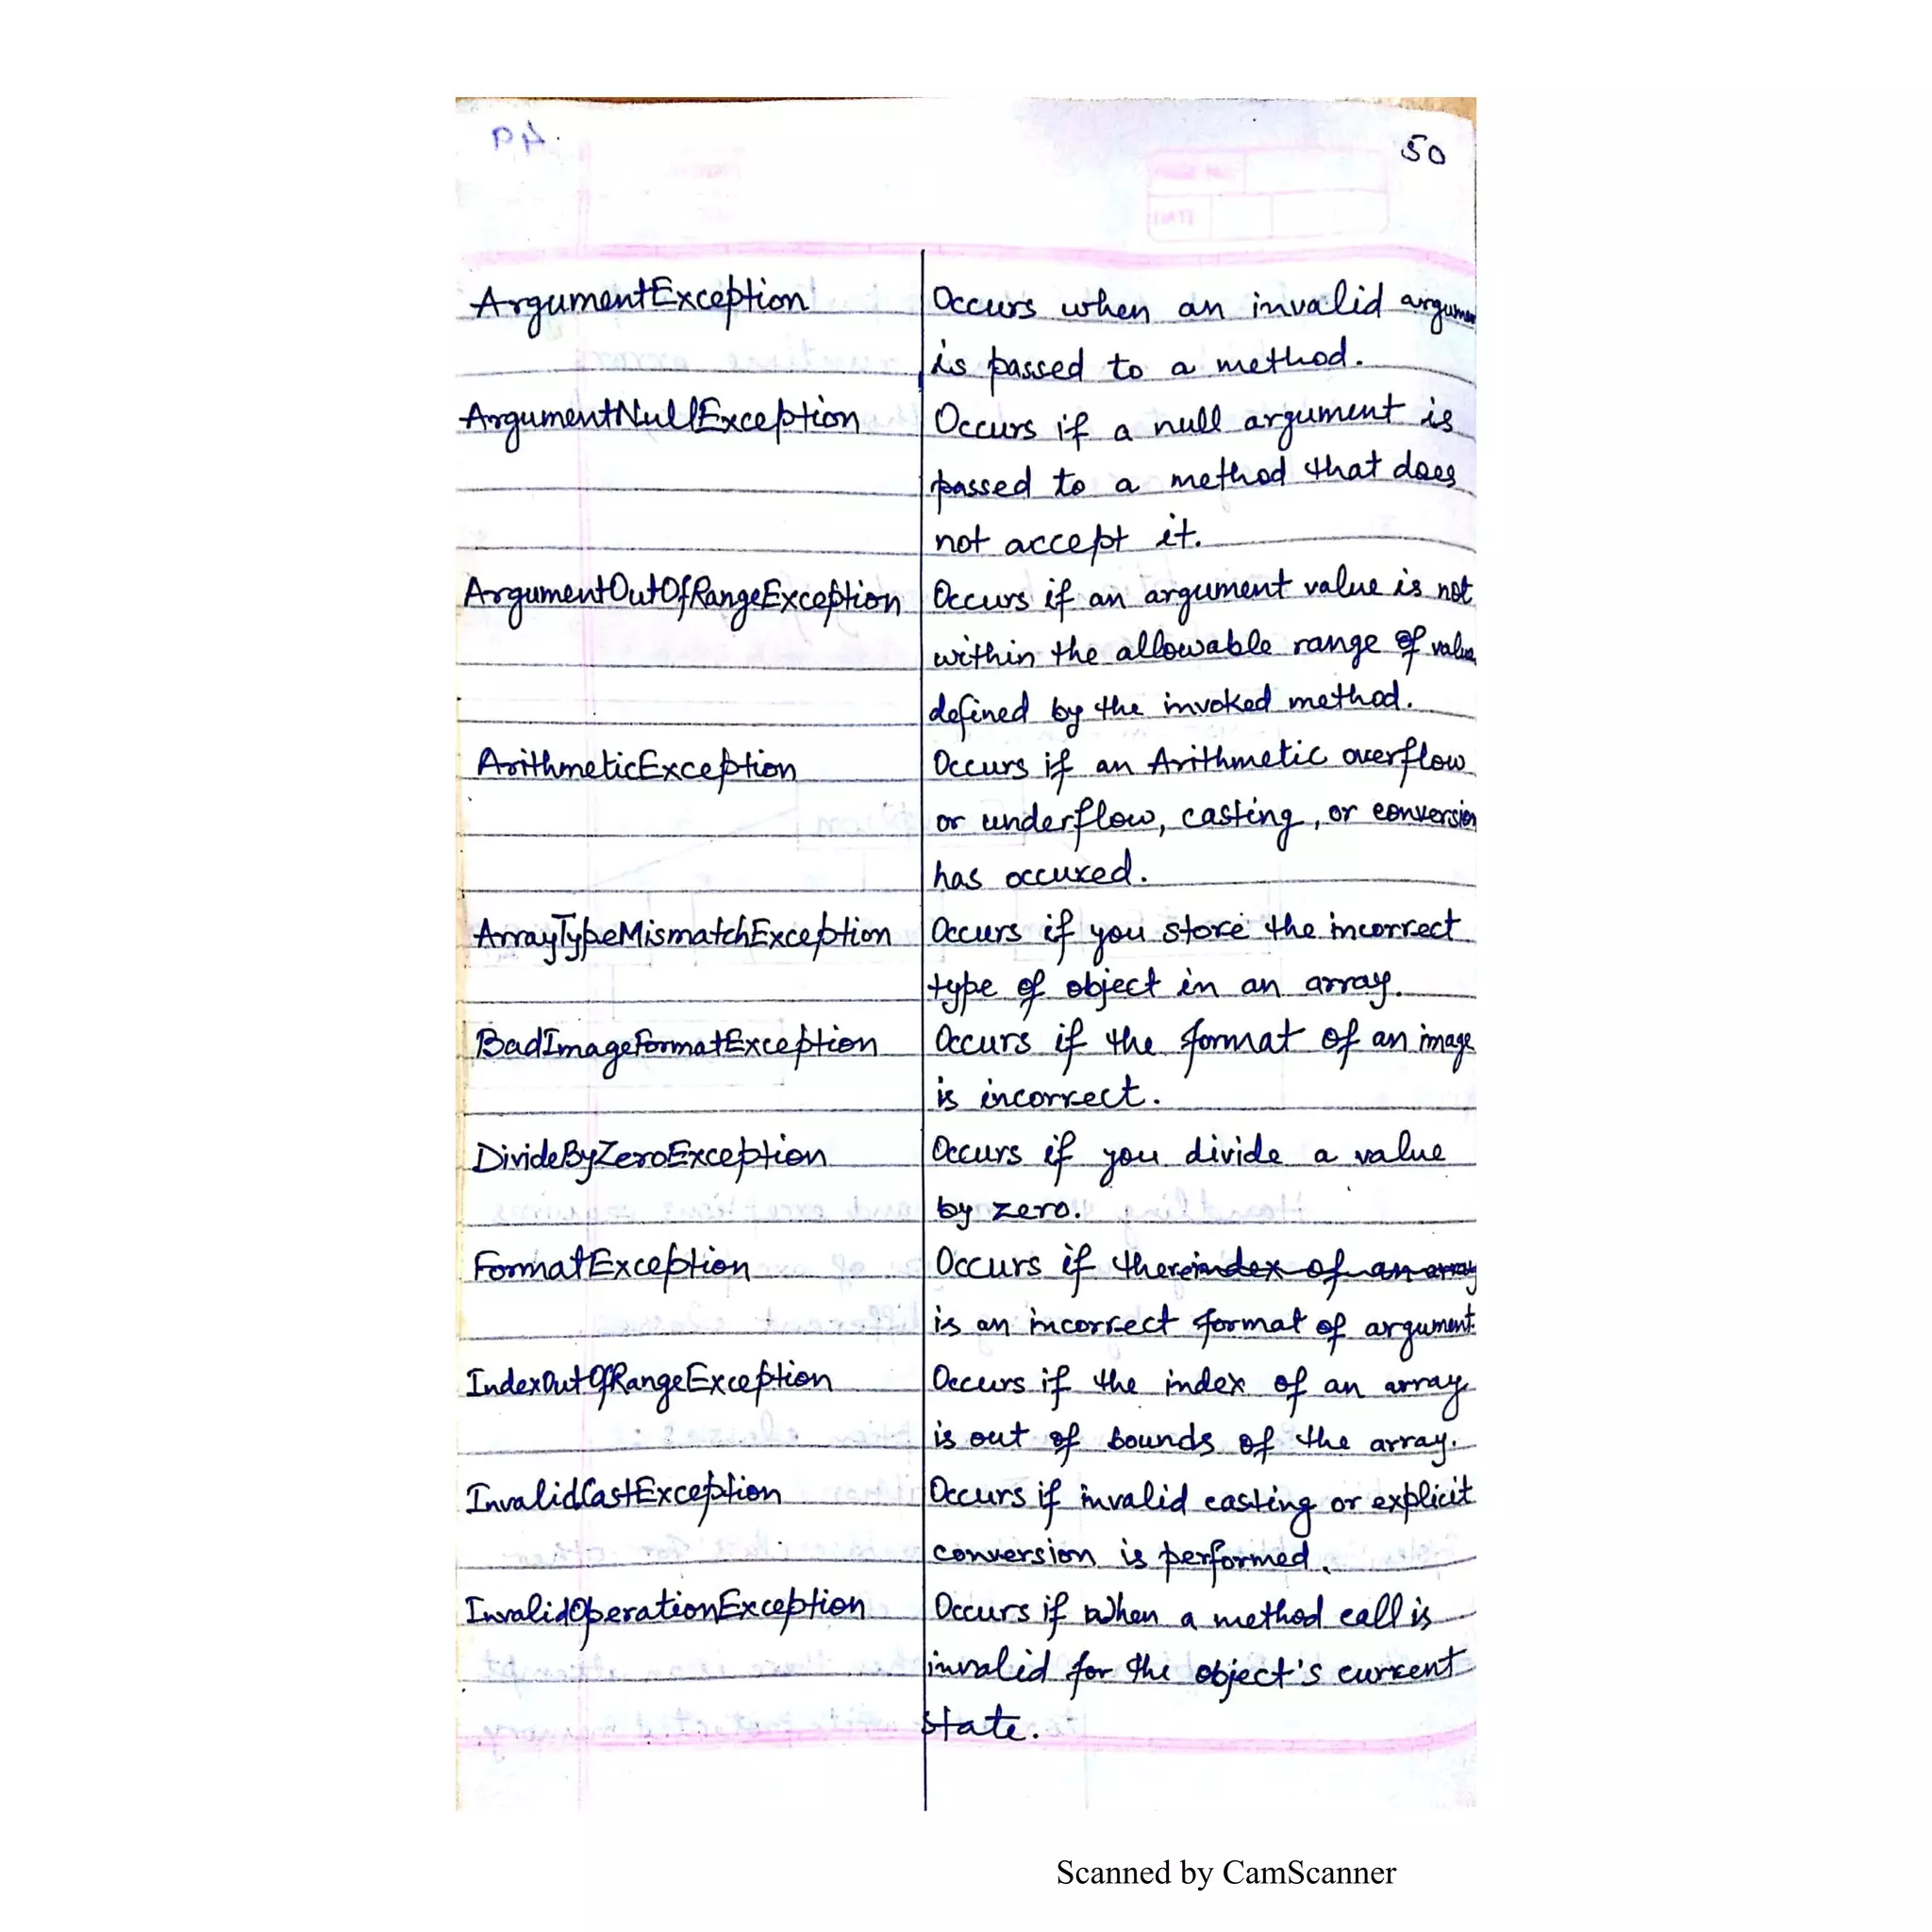 50
ArgumentException Occurs when an invalid
is passed to a method.
ArgumentNullException Occurs if a null argument is
passed to a method that does
not accept it.
ArgumentOutOfRangeException Occurs if an argument value is not
within the allowable range of value
defined by the invoked method.
ArithmeticException Occurs if an Arithmetic overflow
or underflow, casting, or conversion
has occured.
ArrayTypeMismatchException Occurs if you store the incorrect
type of object in an array.
BadImageFormatException Occurs if the format of an image
is incorrect.
DivideByZeroException Occurs if you divide a value
by zero.
FormatException Occurs if there index of an array
is an incorrect format of argument.
IndexOutOfRangeException Occurs if the index of an array
is out of bounds of the array.
InvalidCastException Occurs if invalid casting or explicit
conversion is performed.
InvalidOperationException Occurs if when a method call is
invalid for the object's current
state.
Scanned by CamScanner